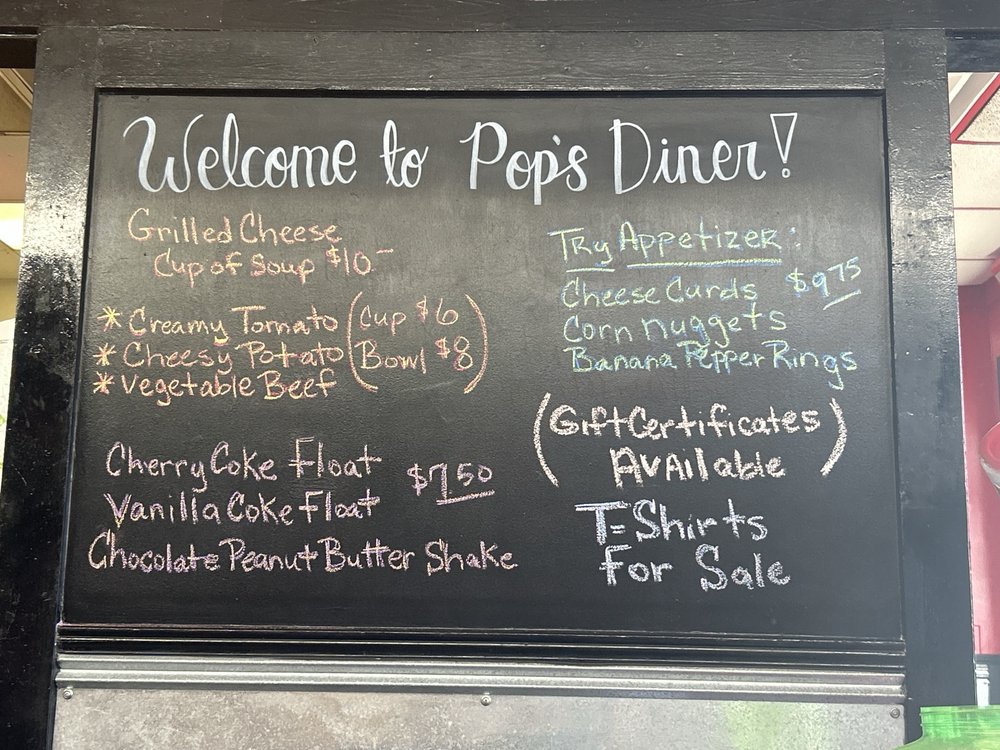 Welcome to Pop's Diner!
Grilled Cheese
Cup of Soup $10-
* Creamy Tomato (Cup $6)
* Cheesy Potato (Bowl $8)
* Vegetable Beef
Cherry Coke Float $7.50
Vanilla Coke Float
Chocolate Peanut Butter Shake
Try Appetizer:
Cheese Curds $9.75
Corn nuggets
Banana Pepper Rings
(Gift Certificates
Available)
T-Shirts
For Sale